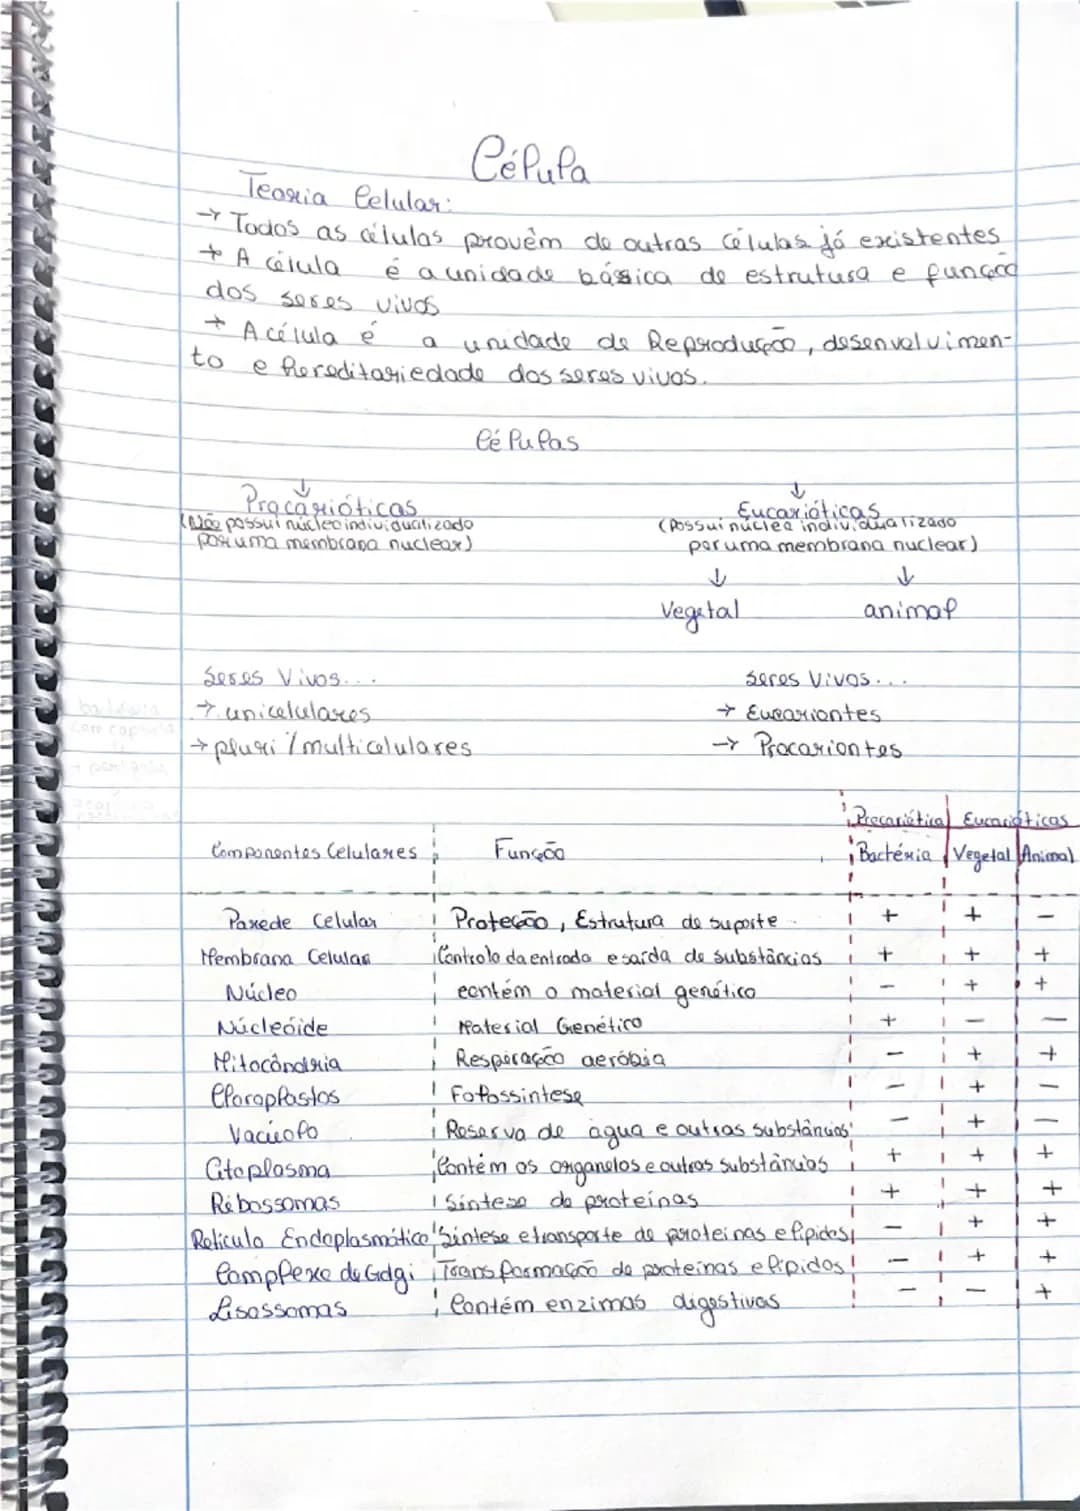 Célula
Teoria Celular:
→ Todas as células provêm de outras células já existentes
→ A célula é a unidade básica de estrutura e função
dos seres vivos
→ A célula é a unidade de Reprodução, desenvolvimen-
to e hereditariedade dos seres vivos.
Células
↓ ↓
Procarióticas Eucarióticas
(Não possui núcleo individualizado (Possui núcleo individualizado
por uma membrana nuclear) por uma membrana nuclear)
↓ ↓
Vegetal animal
Seres Vivos... Seres Vivos...
→ unicelulares → Eucariontes
→ pluri / multicelulares → Procariontes
Procariótica Eucarióticas
Componentes Celulares Função Bactéria Vegetal Animal
Parede Celular Proteção, Estrutura de suporte + + -
Membrana Celular Controlo da entrada e saída de substâncias + + +
Núcleo contém o material genético - + +
Núcleóide Material Genético + - -
Mitocôndria Respiração aeróbia - + +
Cloroplastos Fotossintese - + -
Vacúolo Reserva de água e outras substâncias - + -
Citoplasma Contém os organelos e outras substâncias + + +
Ribossomas Síntese de proteínas + + +
Reticulo Endoplasmático Síntese e transporte de proteinas e lipidos - + +
Complexo de Golgi Transformação de proteinas e lipidos - + +
Lisossomas Contém enzimas digestivas - - +